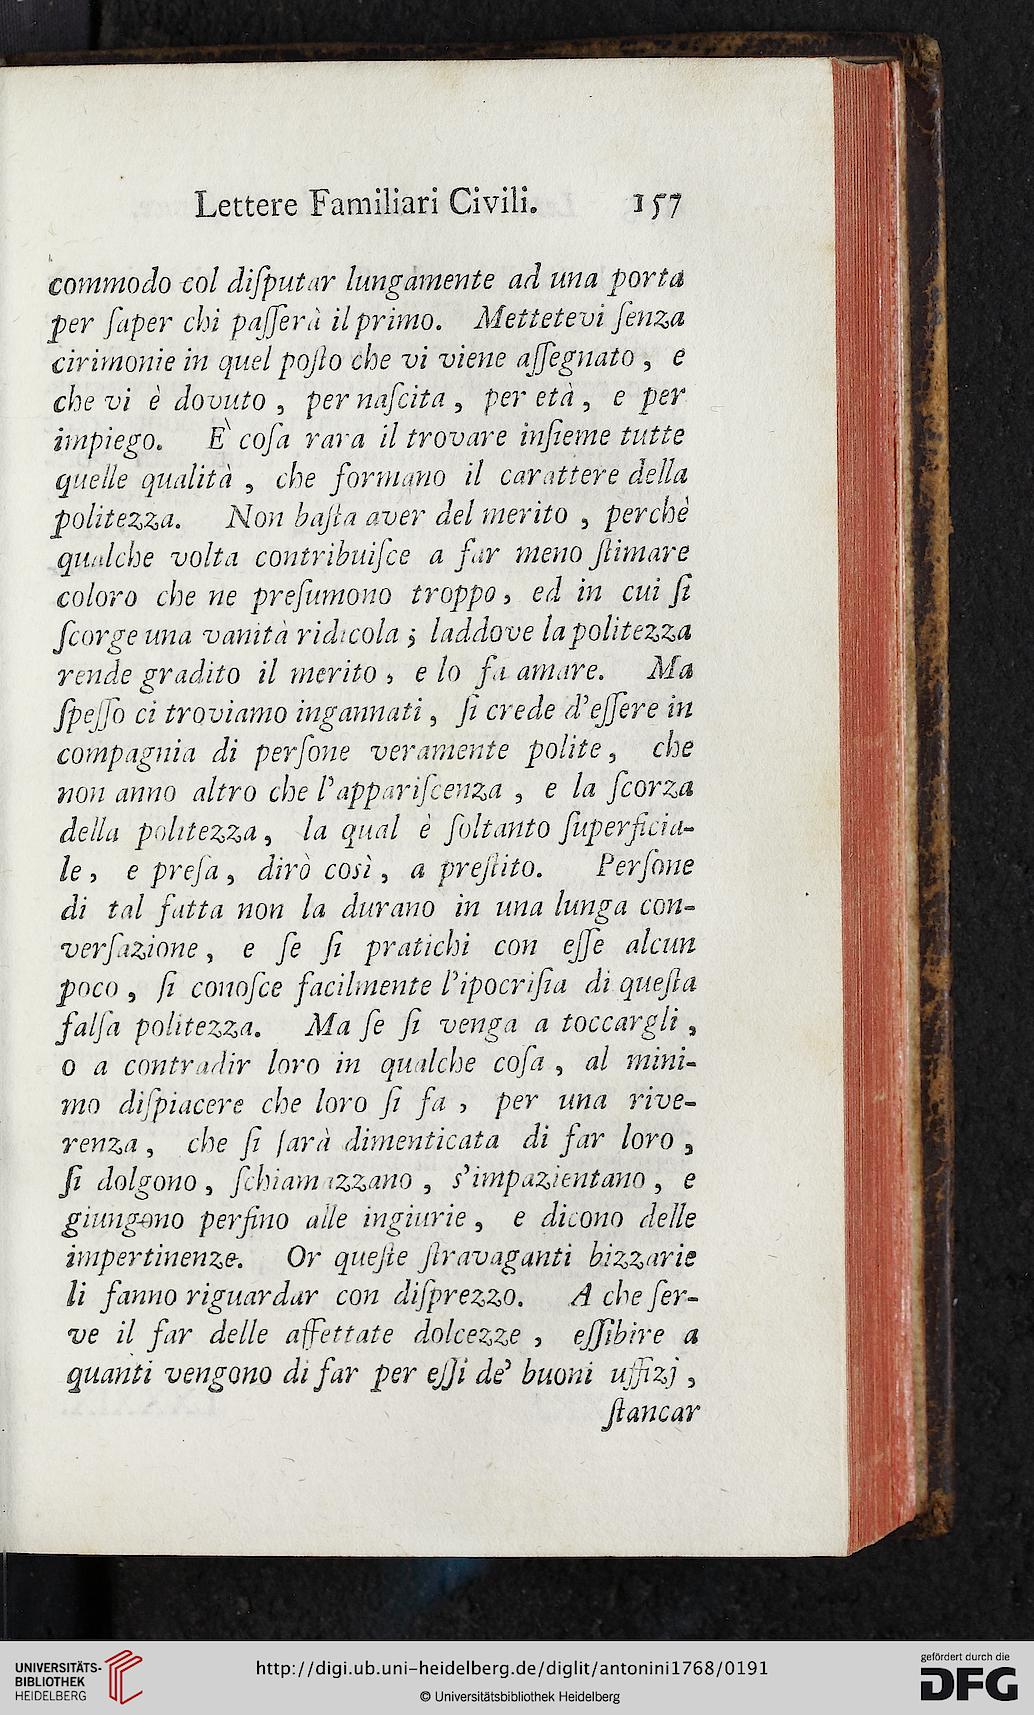 Lettere Familiari Civili. 157
commodo col diſputar lungamente ad una porta
per ſaper chi paſſerà il primo. Mettetevi ſenza
cirimonie in quel poſto che vi viene aſſegnato , e
che vi è dovuto , per naſcita , per età , e per
impiego. E` coſa rara il trovare inſieme tutte
quelle qualità , che formano il carattere della
politezza. Non baſta aver del merito , perchè
qualche volta contribuiſce a far meno ſtimare
coloro che ne preſumono troppo , ed in cui ſi
ſcorge una vanità ridicola ; laddove la politezza
rende gradito il merito , e lo fa amare. Ma
ſpeſſo ci troviamo ingannati , ſi crede d'eſſere in
compagnia di perſone veramente polite , che
non anno altro che l'appariſcenza , e la ſcorza
della politezza , la qual è ſoltanto ſuperficia-
le , e preſa , dirò così , a preſtito. Perſone
di tal fatta non la durano in una lunga con-
verſazione , e ſe ſi pratichi con eſſe alcun
poco , ſi conoſce facilmente l'ipocriſia di queſta
falſa politezza. Ma ſe ſi venga a toccargli ,
o a contradir loro in qualche coſa , al mini-
mo diſpiacere che loro ſi fa , per una rive-
renza , che ſi ſarà dimenticata di far loro ,
ſi dolgono , ſchiamazzano , s'impazientano , e
giungono perfino alle ingiurie , e dicono delle
impertinenze. Or queſte ſtravaganti bizzarie
li fanno riguardar con diſprezzo. A che ſer-
ve il far delle affettate dolcezze , eſſibire a
quanti vengono di far per eſſi de' buoni uffizj ,
ſtancar
UNIVERSITÄTS-
BIBLIOTHEK
HEIDELBERG
http://digi.ub.uni-heidelberg.de/diglit/antonini1768/0191
© Universitätsbibliothek Heidelberg
gefördert durch die
DFG